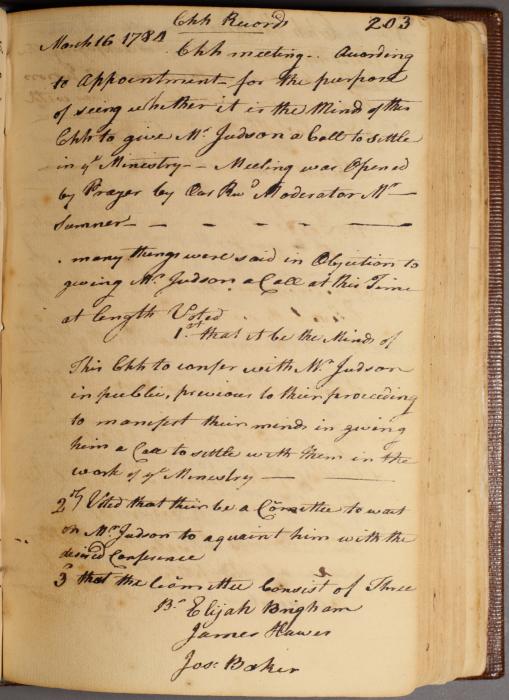 Chh Records 203
March 16 1784
Chh meeting.. Auording
to Appointment for the purpose
of seing whether it is the Mind of this
Chh to give Mr. Judson a Call to settle
in ye Ministry — Meeting was Opened
by Prayer by Our Revd Moderator Mr —
Sumner — — — — —
. many things were said in Objection to
giving Mr. Judson a Call at this Time
at length Voted
1st that it be the Minds of
This Chh to confer with Mr. Judson
in public, previous to their proceeding
to manifest their minds in giving
him a Call to settle with them in the
work of ye Ministry —
2ly Voted that thier be a Cōmittee to wait
on Mr. Judson to aquaint him with the
desired Conference
3 that the Cōmittee Consist of Three
Br Elijah Brigham
James Hawes
Jos: Baker